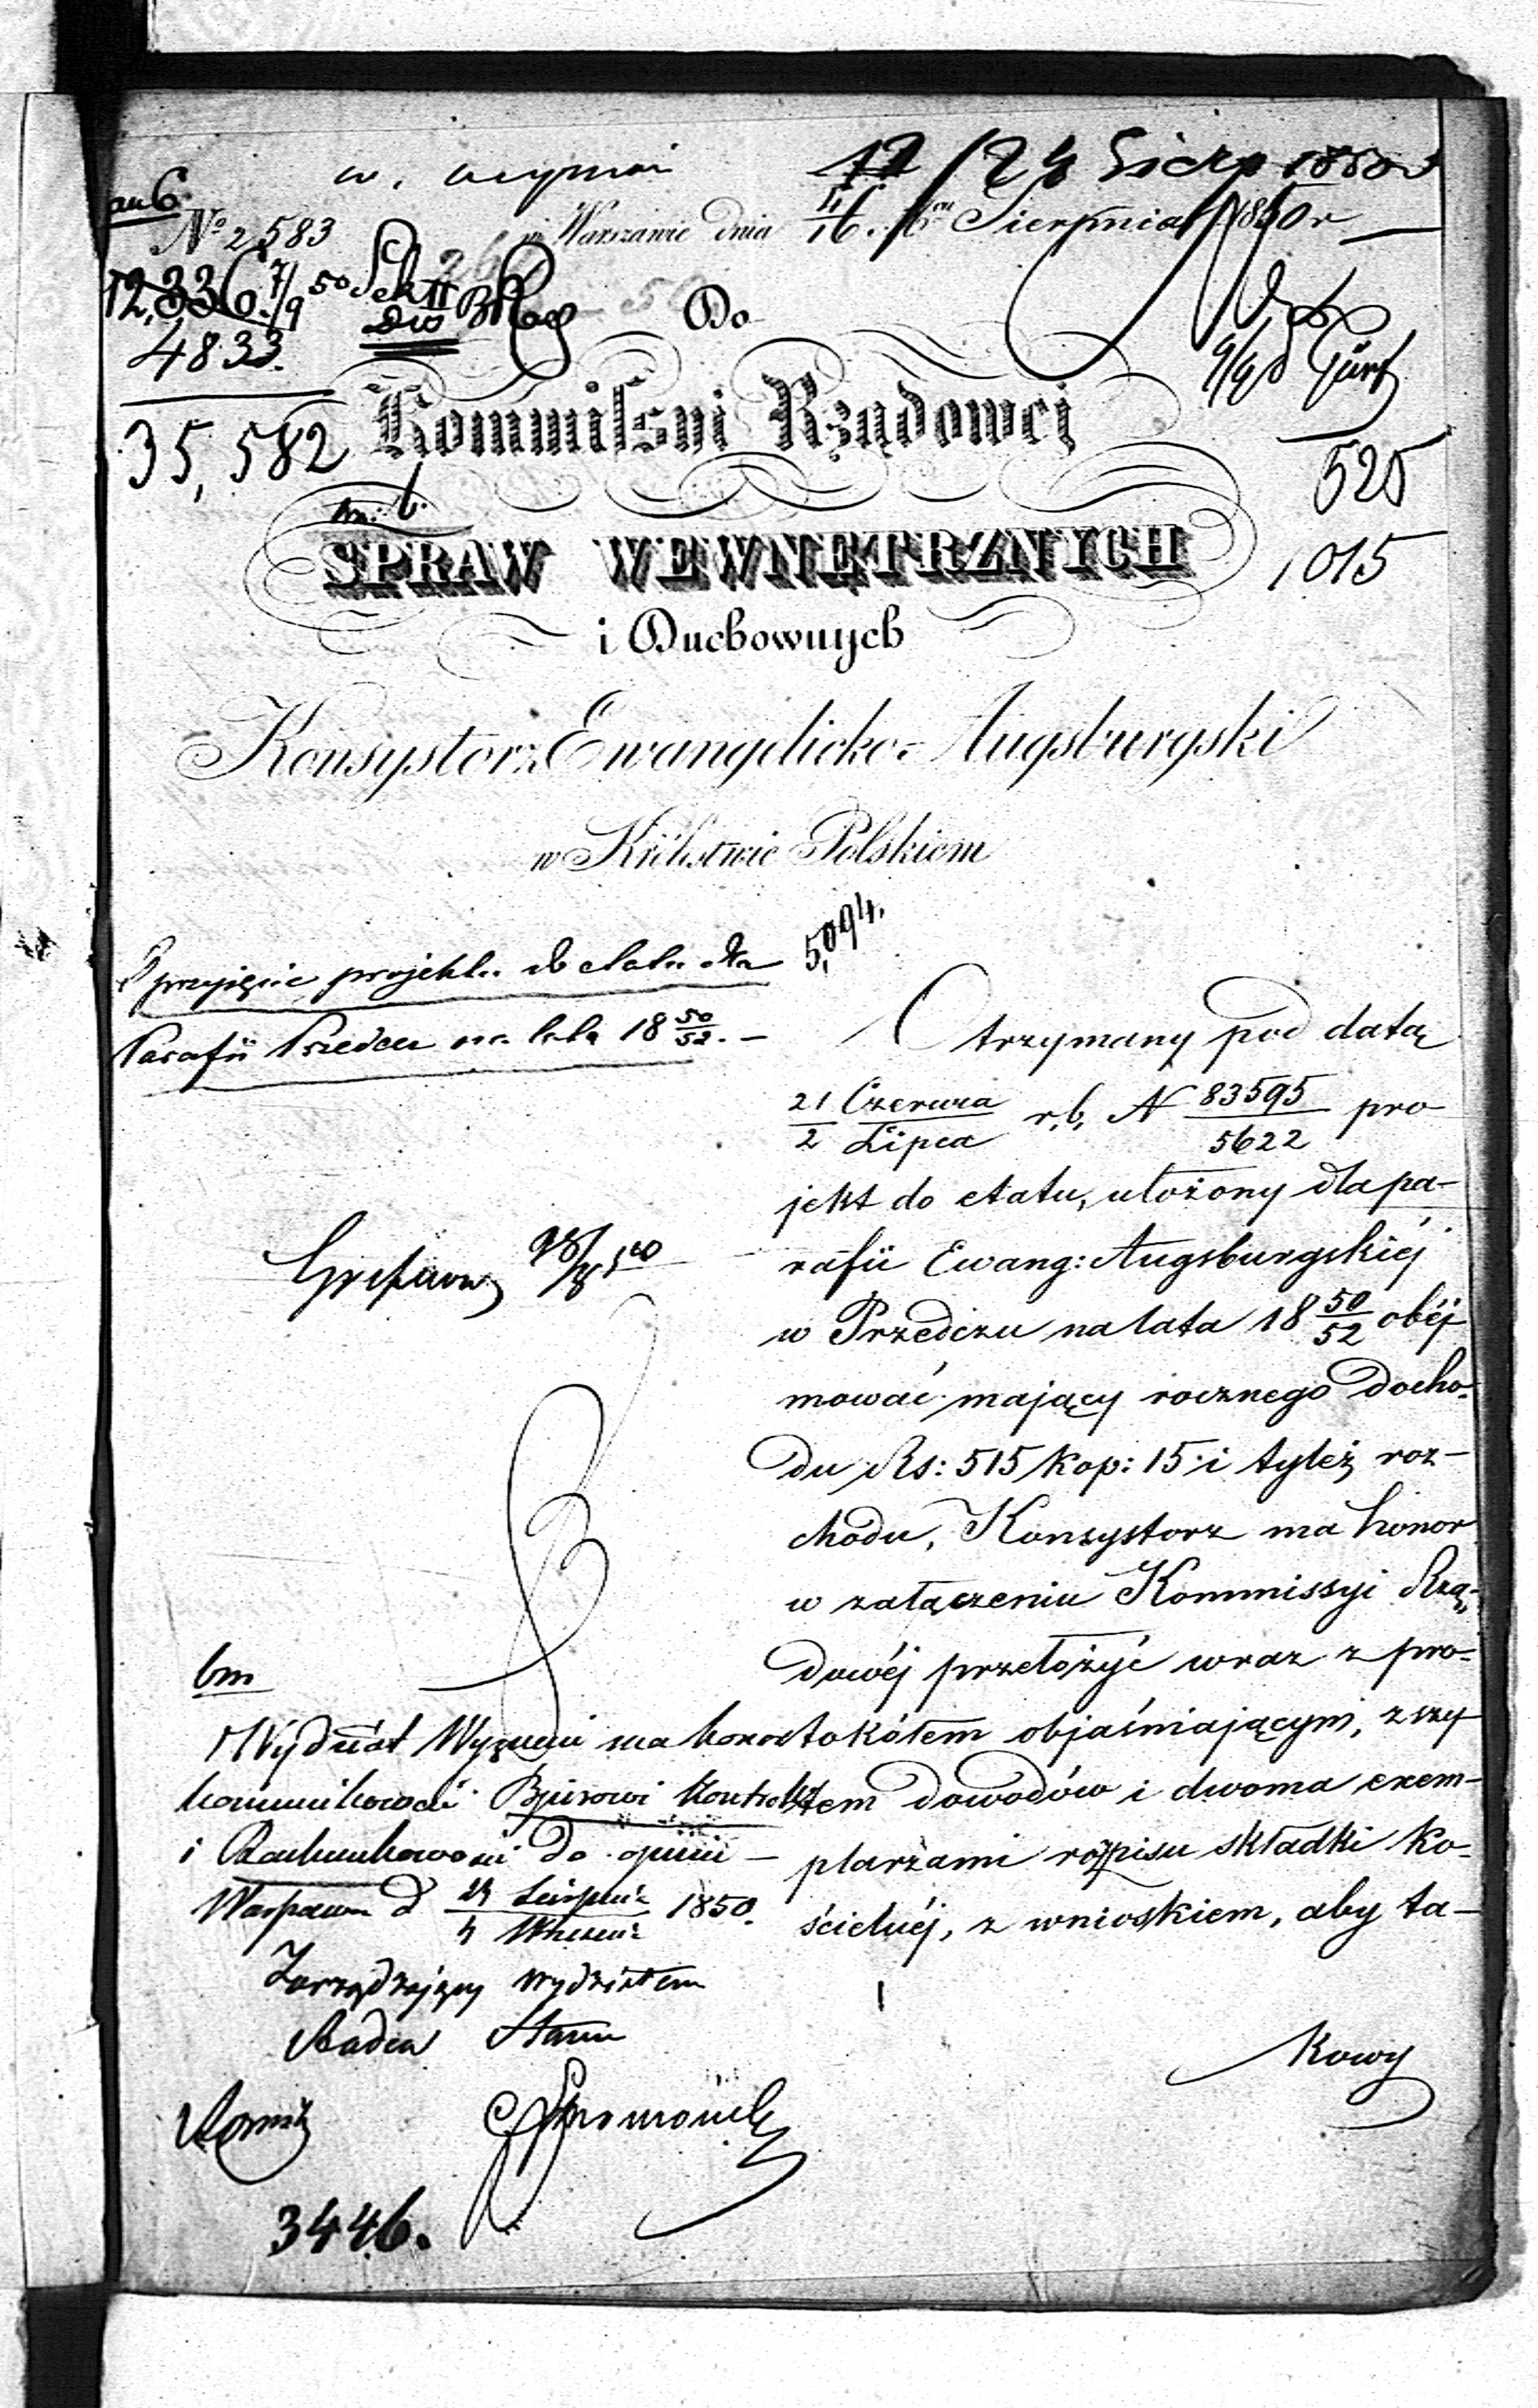 w. wyznań 12/24 Sierp 1850
an 6.
No 2583
w Warszawie dnia 4/16. Sierpnia 1850 r
12,336. 7/9 50 Sek II
4833.
35,582
Do
Kommissyi Rządowej
525
SPRAW WEWNĘTRZNYCH
1015
i Duchownych
Konsystorz Ewangelicko-Augsburgski
w Królestwie Polskiem
5,094.
O przyjęcie projektu do etatu dla
Parafii Przedecz na lata 18 50/52. –
Otrzymany pod datą
21 Czerwca / 2 Lipca r. b. N 83595/5622 pro
jekt do etatu, ułożony dla pa-
rafii Ewang: Augsburgskiéj
w Przedczu na lata 18 50/52 obéj
mować mający rocznego docho-
du Rs: 515 kop: 15 i tyleż roz-
chodu, Konsystorz ma honor
w załączeniu Kommissyi Rzą-
dowéj przełożyć wraz z pro-
tokółem objaśniającym, zszy
tem dowodów i dwoma exem-
plarzami rozpisu składki ko-
ścielnéj, z wnioskiem, aby ta-
kowy
bm
Wydział Wyznań ma honor
kommunikować Biurowi Kontroli
i Rachunkowości do opinii –
Warszawa d 23 Sierpnia / 4 Września 1850.
Zarządzający Wydziałem
Radca Stanu
3446.